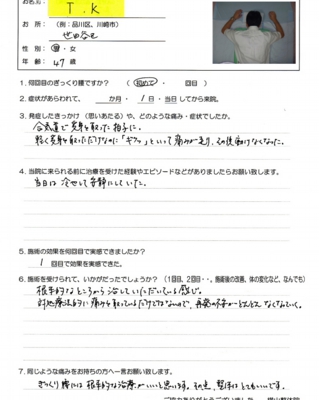 お名前:
T.K
お 所:(例:品川区、川崎市)
世田谷区
性 別:男・女
年 齢:47歳
1. 何回目のぎっくり腰ですか? (初めて・ 回目)
2. 症状があらわれて、 か月・1日・当日してから来院。
3. 発症したきっかけ(思いあたる)や、どのような痛み・症状でしたか。
合気道で受身を取った拍子に。
軽く受身を取っただけなのに「ギクッ」といって痛みが走り、その後動けなくなった。
4. 当院に来られる前に治療を受けた経験やエピソードなどがありましたらお願い致します。
当日は冷やして安静にしていた。
5. 施術の効果を何回目で実感できましたか?
1回目で効果を実感できた。
6. 施術を受けられて、いかがだったでしょうか?(1回目、2回目・・、施術後の改善、体の変化など、なんでも)
根本的なところから治していただいている感じ。
対処療法的に痛みを取っているだけではないので、再発の不安がどんどんなくなっていく。
7. 同じような痛みをお持ちの方へ一言お願い致します。
ぎっくり腰には根本的な治療がいいと思います。その点、整体はとてもいいです。
ご協力ありがとうございました